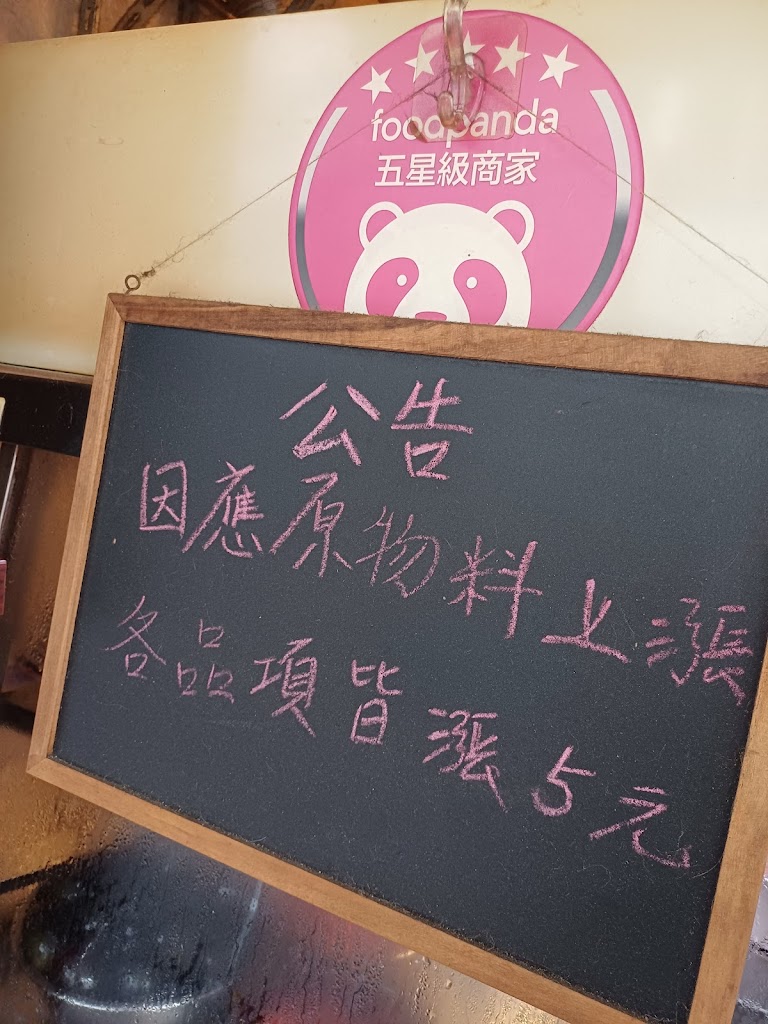 foodpanda
五星級商家
公告
因應原物料上漲
各品項皆漲5元